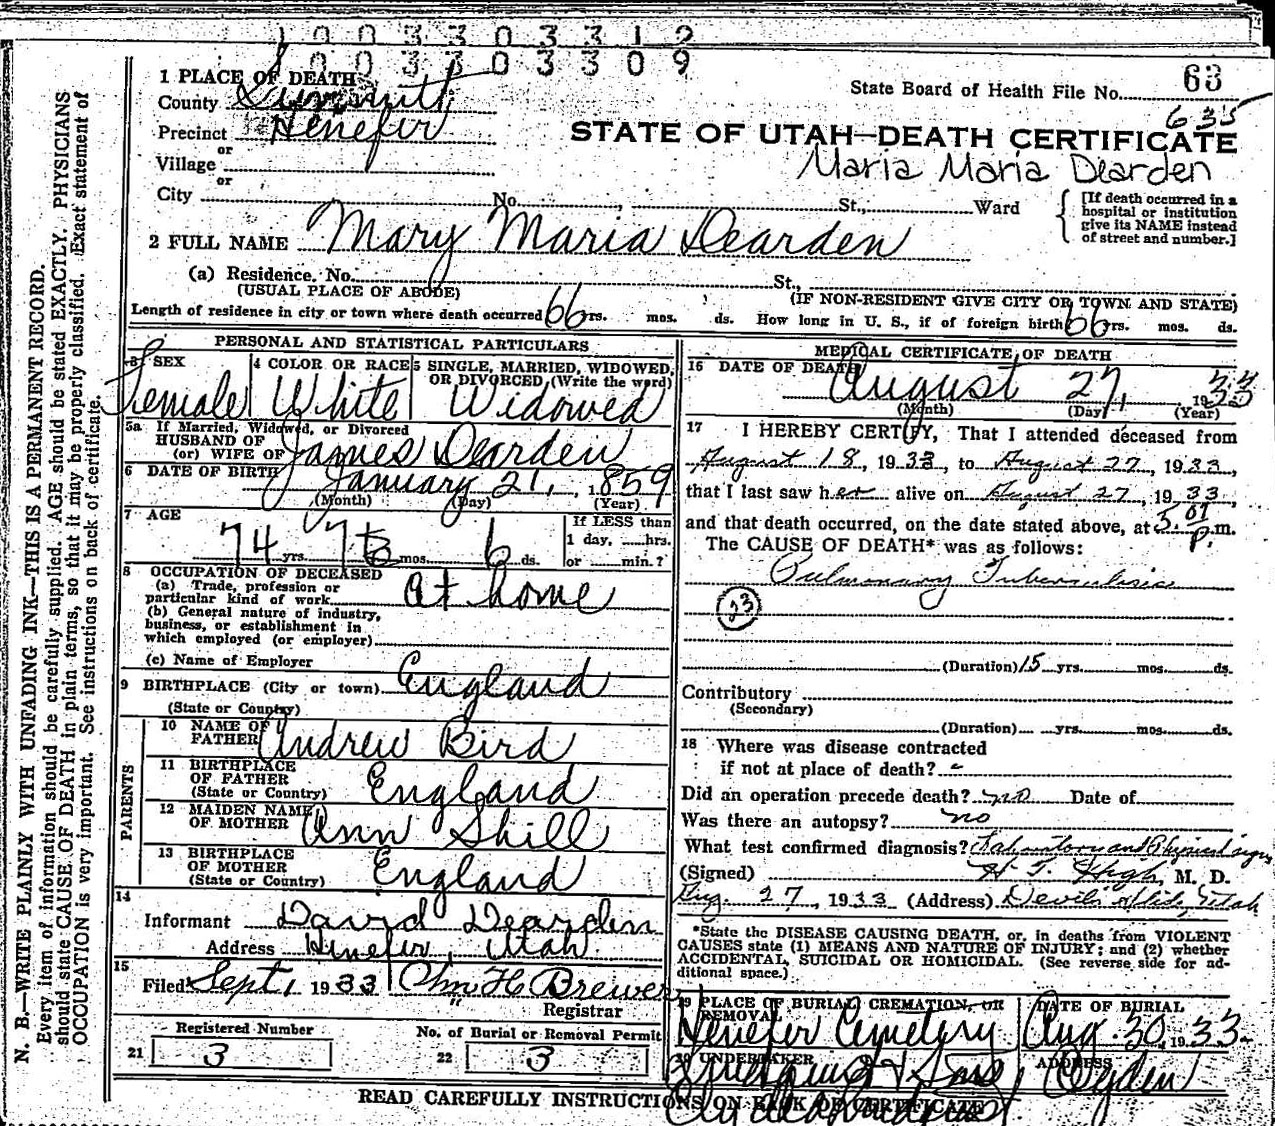 1 0 0 3 3 0 3 3 1 2
1 0 0 3 3 0 3 3 0 9
1 PLACE OF DEATH
County Summit
Precinct Henefer
or
Village
or
City No. St., Ward
State Board of Health File No. 63
635
STATE OF UTAH—DEATH CERTIFICATE
Maria Maria Dearden
[If death occurred in a hospital or institution give its NAME instead of street and number.]
2 FULL NAME Mary Maria Dearden
(a) Residence. No. St.,
(USUAL PLACE OF ABODE) (IF NON-RESIDENT GIVE CITY OR TOWN AND STATE)
Length of residence in city or town where death occurred 66 yrs. mos. ds. How long in U. S., if of foreign birth 66 yrs. mos. ds.
PERSONAL AND STATISTICAL PARTICULARS
3 SEX 4 COLOR OR RACE 5 SINGLE, MARRIED, WIDOWED, OR DIVORCED (Write the word)
Female White Widowed
5a If Married, Widowed, or Divorced
HUSBAND OF
(or) WIFE OF James Dearden
6 DATE OF BIRTH January 21, 1859
(Month) (Day) (Year)
7 AGE If LESS than
74 yrs. 7 mos. 6 ds. 1 day, hrs.
or min.?
8 OCCUPATION OF DECEASED
(a) Trade, profession or
particular kind of work At home
(b) General nature of industry,
business, or establishment in
which employed (or employer)
(c) Name of Employer
9 BIRTHPLACE (City or town) England
(State or Country)
PARENTS
10 NAME OF FATHER Andrew Bird
11 BIRTHPLACE OF FATHER England
(State or Country)
12 MAIDEN NAME OF MOTHER Ann Shill
13 BIRTHPLACE OF MOTHER England
(State or Country)
14
Informant David Dearden
Address Henefer, Utah
15
Filed Sept 1 1933 Chm H Brewer
Registrar
Registered Number No. of Burial or Removal Permit
21 3 22 3
MEDICAL CERTIFICATE OF DEATH
16 DATE OF DEATH August 27, 1933
(Month) (Day) (Year)
17 I HEREBY CERTIFY, That I attended deceased from
August 18, 1933, to August 27, 1933,
that I last saw her alive on August 27, 1933
and that death occurred, on the date stated above, at 5:01 p.m.
The CAUSE OF DEATH* was as follows:
Pulmonary Tuberculosis
23
(Duration) 15 yrs. mos. ds.
Contributory
(Secondary)
(Duration) yrs. mos. ds.
18 Where was disease contracted
if not at place of death? -
Did an operation precede death? no Date of
Was there an autopsy? no
What test confirmed diagnosis? Laboratory and Physical signs
(Signed) H. T. High, M. D.
Aug. 27, 1933 (Address) Devils Slide, Utah
*State the DISEASE CAUSING DEATH, or, in deaths from VIOLENT
CAUSES state (1) MEANS AND NATURE OF INJURY; and (2) whether
ACCIDENTAL, SUICIDAL OR HOMICIDAL. (See reverse side for ad-
ditional space.)
19 PLACE OF BURIAL CREMATION, OR REMOVAL DATE OF BURIAL
Henefer Cemetery Aug. 30, 1933.
20 UNDERTAKER ADDRESS
& Sons, Ogden
READ CAREFULLY INSTRUCTIONS ON BACK OF CERTIFICATE
N. B.—WRITE PLAINLY WITH UNFADING INK—THIS IS A PERMANENT RECORD.
Every item of information should be carefully supplied. AGE should be stated EXACTLY. PHYSICIANS
should state CAUSE OF DEATH in plain terms, so that it may be properly classified. Exact statement of
OCCUPATION is very important. See instructions on back of certificate.